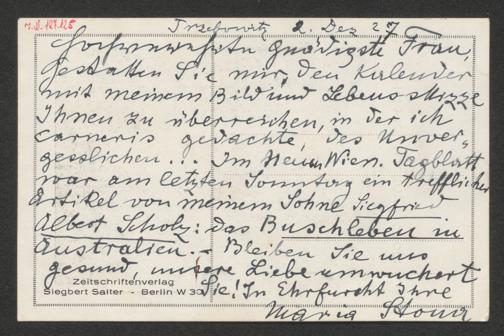 Trzebowitz 2. Dez 27
Hochverehrte gnädigste Frau,
gestatten Sie mir, den Kalender
mit meinem Bild und Lebensskizze
Ihnen zu überreichen, in der ich
carneris gedachte, des Unver-
gesslichen... Im Neuen Wien. Tagblatt
war am letzten Sonntag ein trefflicher
Artikel von meinem Sohne Siegfried
Albert Scholz: Das Buschleben in
Australien. - Bleiben Sie uns
gesund, unsere Liebe umwuchert
Zeitschriftenverlag
Siegbert Salter - Berlin W 30
Sie! In Ehrfurcht Ihre
Maria Stona